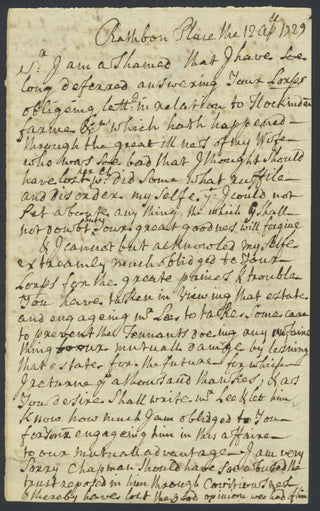 Rathbon Place the 12 Ap:le 1729
Sr I am ashamed that I have soe
long deferred answering Your Lorsps
obligeing letter in relation to Hockinden
farme &c which hath happened
through the great illness of my Wife
who was soe bad that I thought should
have lost her, wch did some what ruffle
and disorder my selfe yt I could not
set about any thing, the which I shall
not doubt Your great goodnes will forgive
& I cannot but acknowled my selfe
extreamly much oblidged to Your
Lorsps for the great paines & trouble
You have taken in viewing that estate
and engageing Mr Lee to take some care
to prevent the Tennants doeing any unfaire
thing to our mutuall damage by lesning
that estate for the future for which
I returne yu a thousand thankes, & as
You desire shall write Mr Lee & let him
Know how much I am obliged to You
for Your engageing him in this affaire
to our mutuall advantage - I am very
Sorry Chapman should have soe abused the
trust reposed in him through Covitiousness
& thereby have lost the good opinion wee had of him